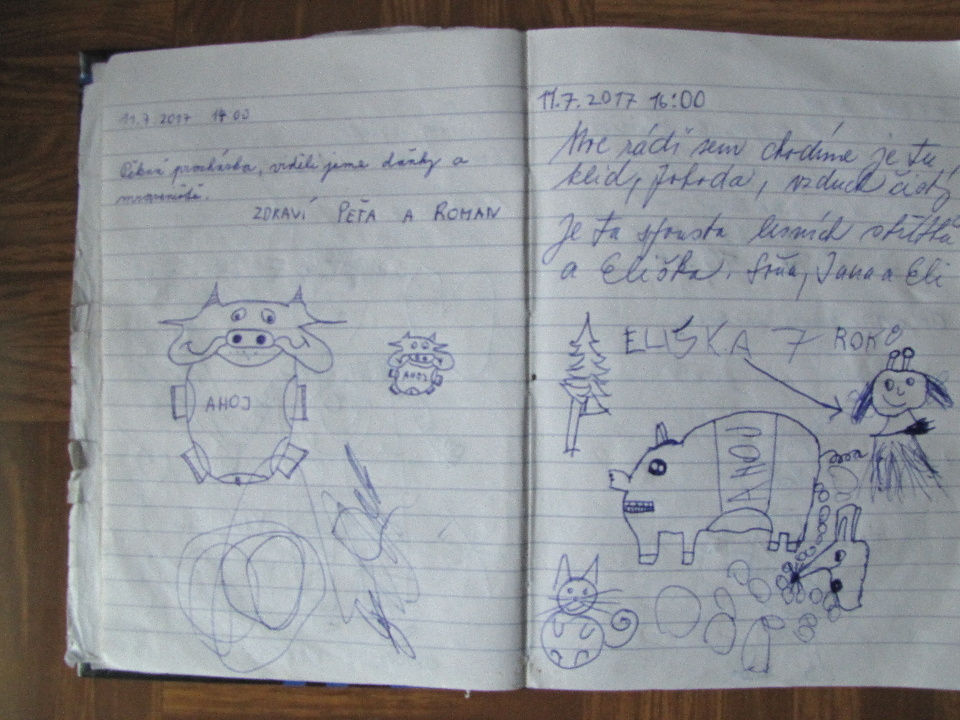 11.7.2017 14:00
Pěkná procházka, viděli jsme daňky a
mraveniště.
ZDRAVÍ PEŤA A ROMAN
AHOJ
AHOJ
11.7.2017 16:00
Moc rádi sem chodíme je tu
klid, pohoda, vzduch čistý
Je tu spousta lesních skřítků
a Eliška. Soňa, Jana a Eli
ELIŠKA 7 ROKŮ
AHOJ